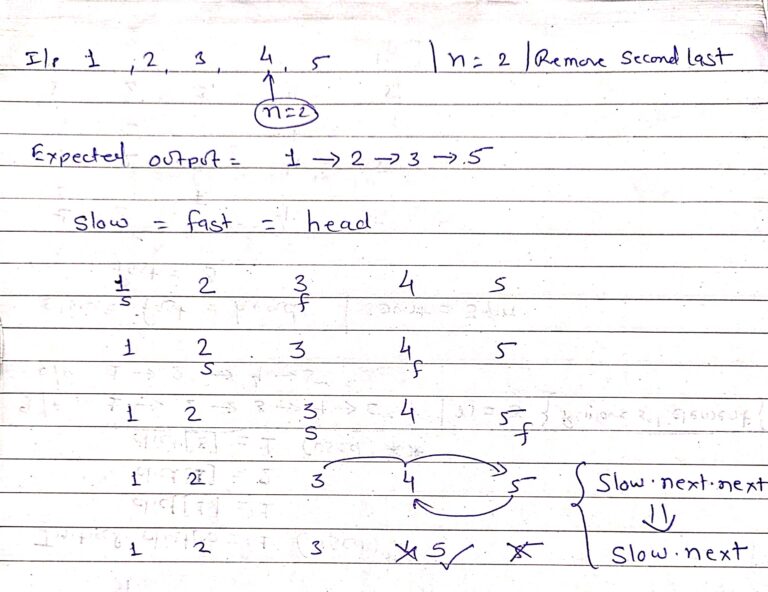 I/p 1 , 2, 3, 4, 5 | n = 2 | Remove second last
n=2
Expected output = 1 → 2 → 3 → 5
slow = fast = head
1 2 3 4 5
s f
1 2 3 4 5
s f
1 2 3 4 5
s f
1 2 3 4 5 slow.next.next
⇓
1 2 3 4 5 ✓ 5 slow.next